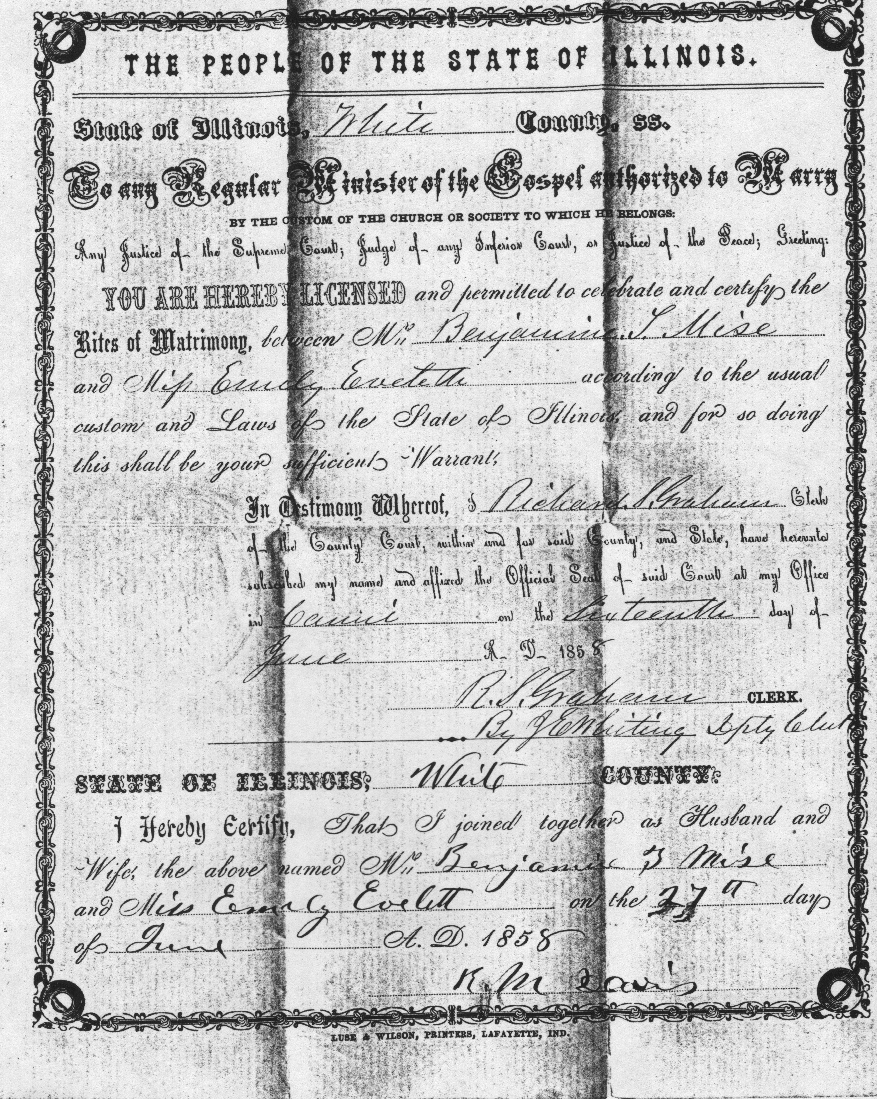 THE PEOPLE OF THE STATE OF ILLINOIS.
State of Illinois, White County, ss.
To any Regular Minister of the Gospel authorized to Marry
BY THE CUSTOM OF THE CHURCH OR SOCIETY TO WHICH HE BELONGS:
Any Justice of the Supreme Court; Judge of any Inferior Court, or Justice of the Peace; Greeting:
YOU ARE HEREBY LICENSED and permitted to celebrate and certify the
Rites of Matrimony, between Mr. Benjamine Mise
and Miss Emely Eveleth according to the usual
custom and Laws of the State of Illinois, and for so doing
this shall be your sufficient Warrant,
In Testimony Whereof, I Richard S. Graham Clerk
of the County Court, within and for said County, and State, have hereunto
subscribed my name and affixed the Official Seal of said Court at my Office
in Carmi on the Sixteenth day of
June A. D. 1858
R. S. Graham CLERK.
By J E Whiting Dpty Clerk
STATE OF ILLINOIS, White COUNTY:
I Hereby Certify, That I joined together as Husband and
Wife, the above named Mr. Benjamine Mise
and Miss Emely Evelett on the 27th day
of June A. D. 1858
K. M. Davis
LUSE & WILSON, PRINTERS, LAFAYETTE, IND.